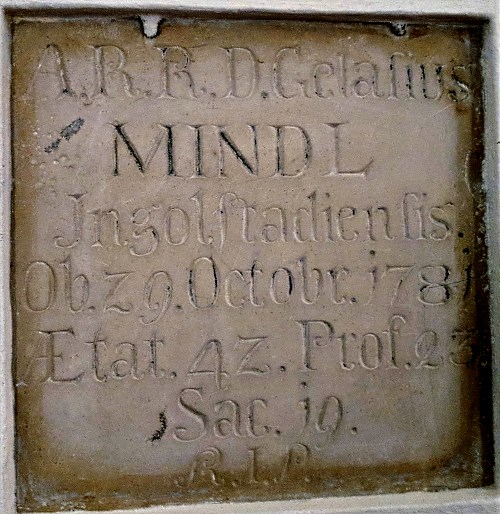 A.R.R.D.Gelaſius
MINDL
Jngolſtadienſis.
Ob.29.Octobr.1781
Ætat. 42. Prof. 23
Sac. 19.
R.I.P.